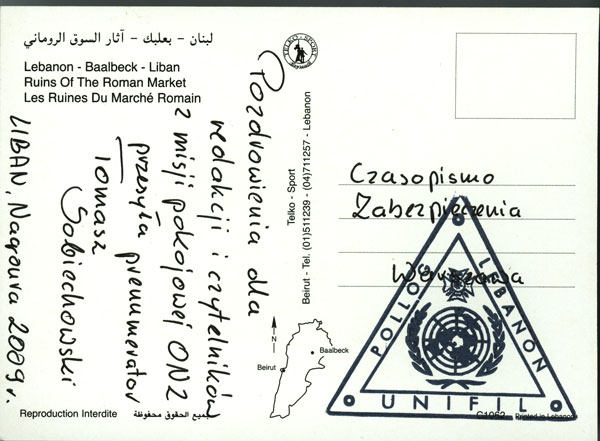 لبنان - بعلبك - آثار السوق الروماني
Lebanon - Baalbeck - Liban
Ruins Of The Roman Market
Les Ruines Du Marché Romain
Pozdrowienia dla
redakcji i czytelników
z misji pokojowej ONZ
przesyła prenumerator
Tomasz
Sobiechowski
LIBAN, Naqoura 2009 r.
TELKO - SPORT
Telko - Sport
Beirut - Tel. (01)511239 - (04)711257 - Lebanon
Czasopismo
Zabezpieczenia
Warszawa
POLLOG LEBANON
UNIFIL
N
Baalbeck
Beirut
Reproduction Interdite
جميع الحقوق محفوظة
C1062 Printed in Lebanon